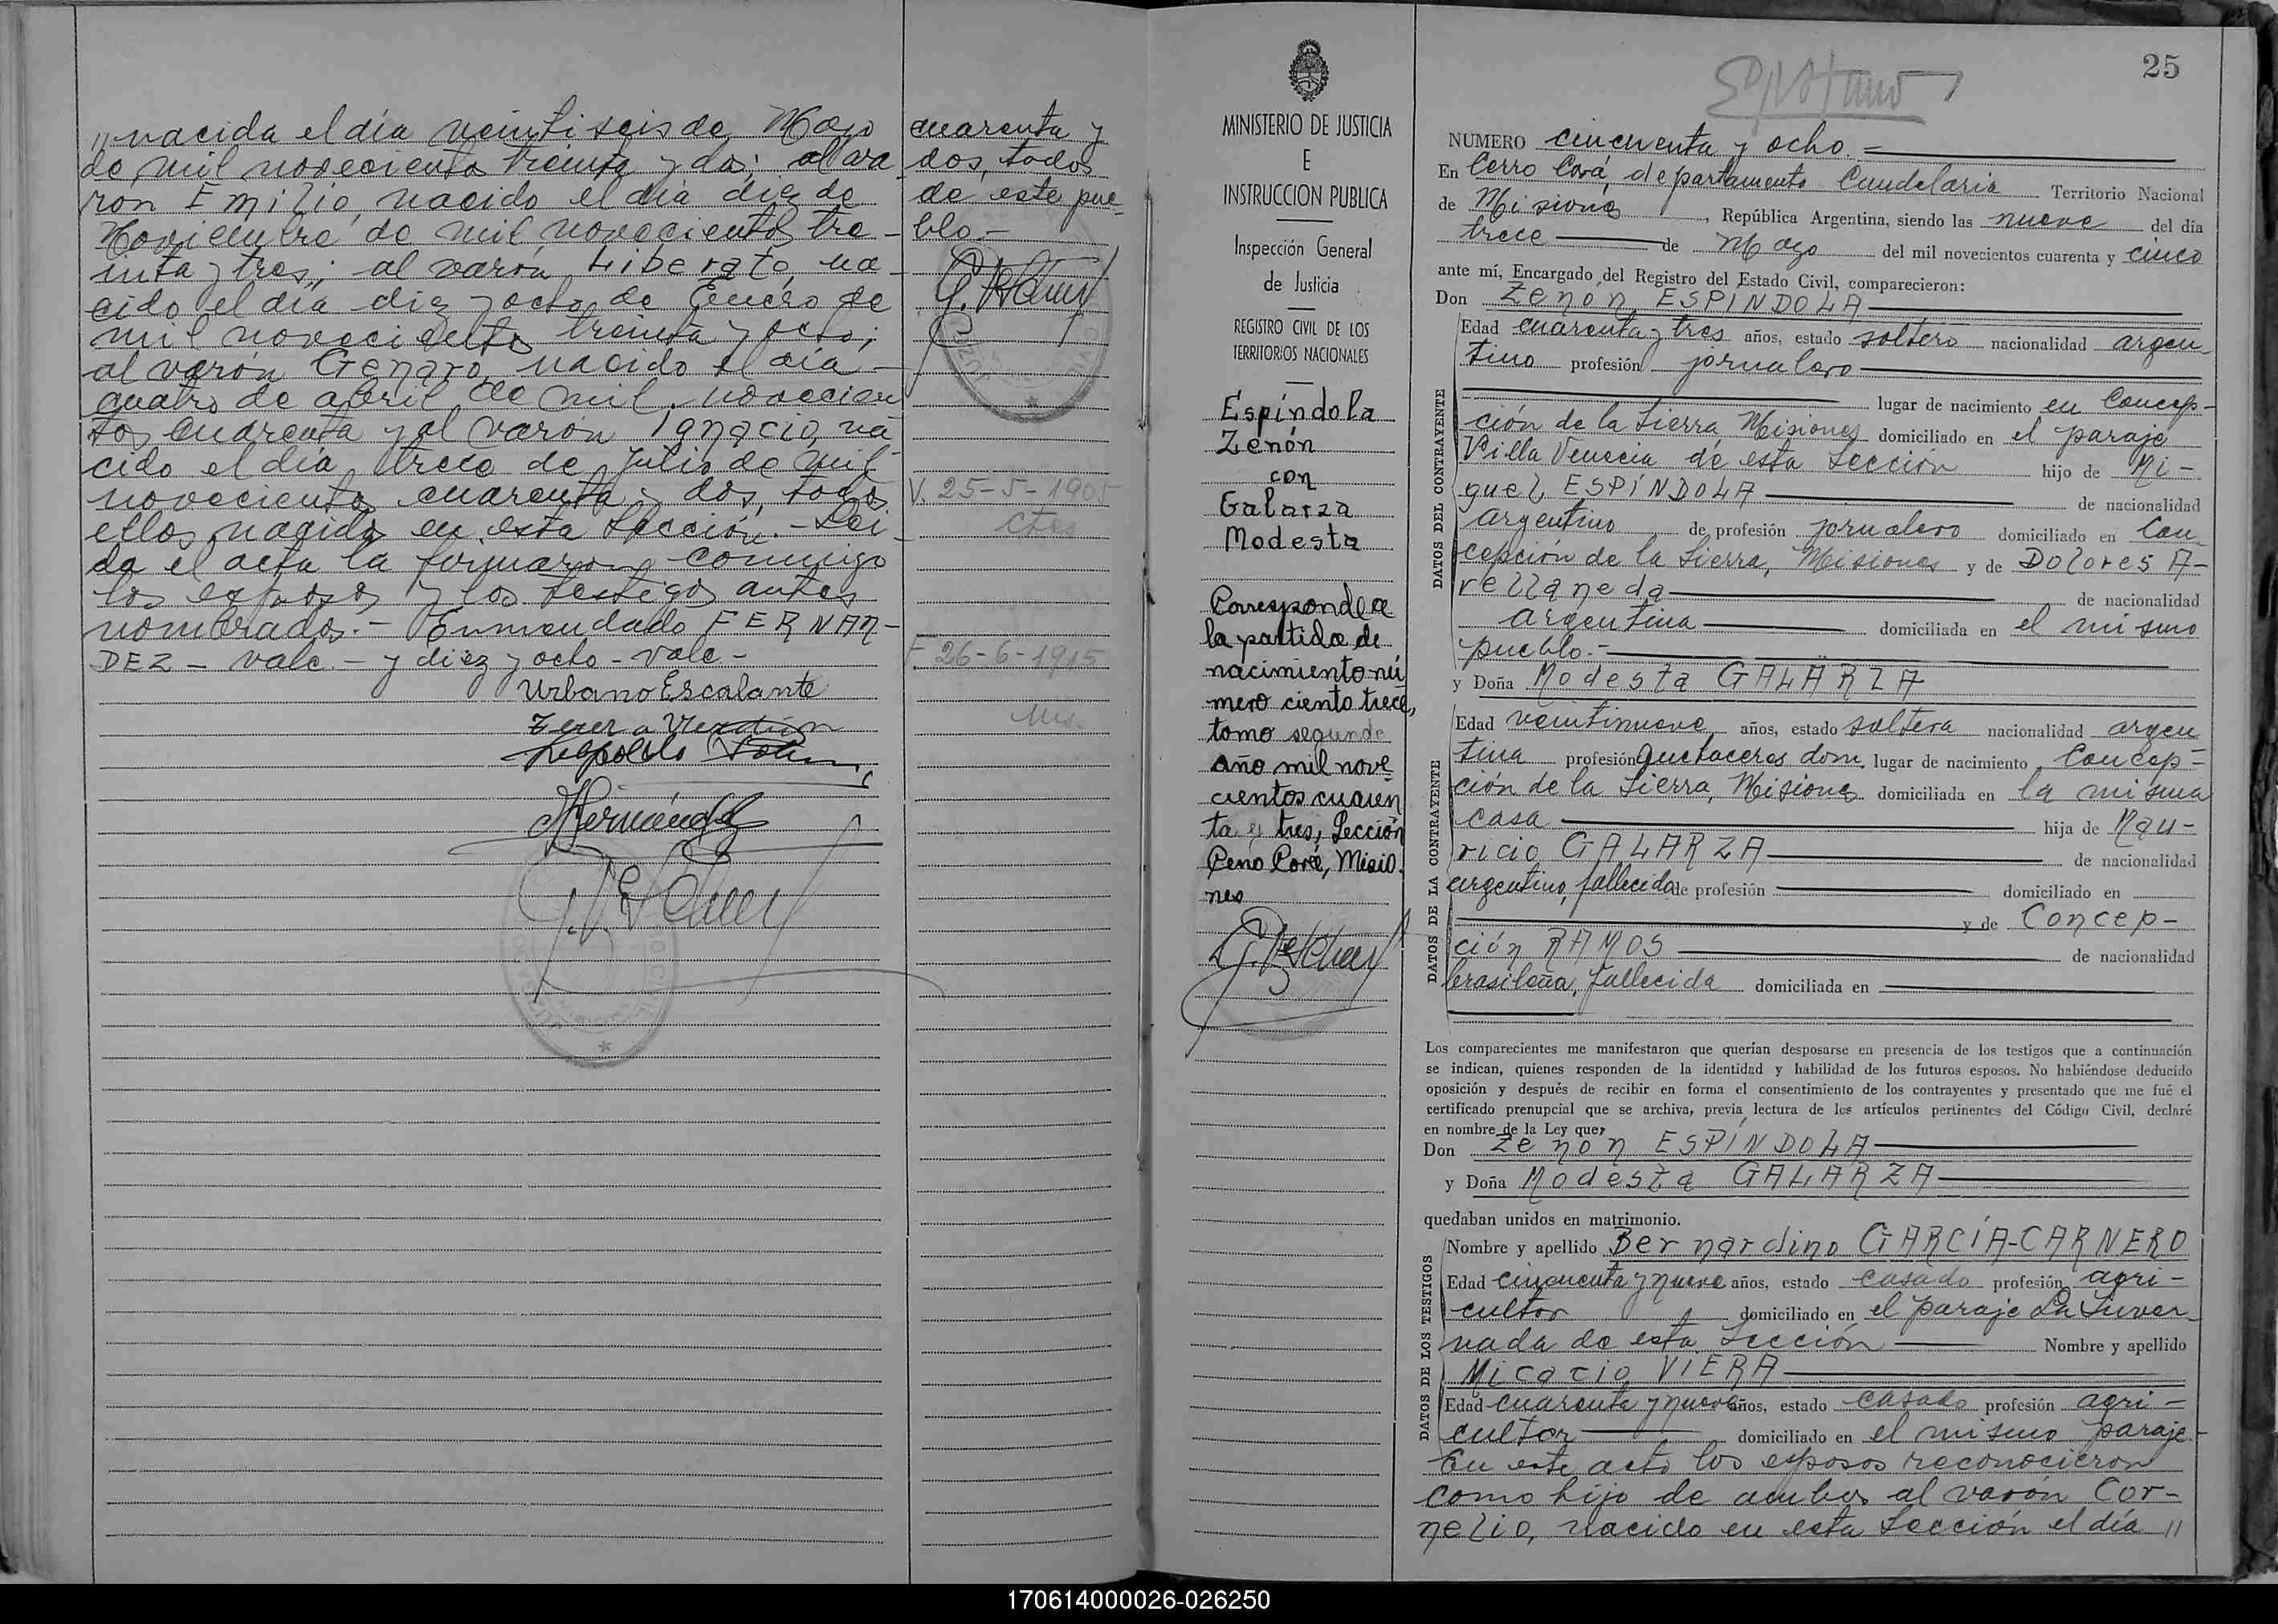 " nacida el día veintiseis de Mayo
de mil novecientos treinta y dos; al va
ron Emilio, nacido el día diez de
Noviembre de mil novecientos tre-
inta y tres; al varón Liberato, na-
cido el día diez y ocho de Enero de
mil novecientos treinta y ocho;
al varón Genaro, nacido el día
cuatro de abril de mil novecien
tos cuarenta y al varón Ignacio, na
cido el día trece de Julio de mil
novecientos cuarenta y dos, todos
ellos nacidos en esta Sección.- Lei-
da el acta la firmaron conmigo
los esposos y los testigos antes
nombrados.- Enmendado FERNAN-
DEZ - vale.- y diez y ocho - vale -
Urbano Escalante
Leopoldo
Hernández
cuarenta y
dos, todos
de este pue-
blo.-
V. 25-5-1905
Ctes
F. 26-6-1915
Mis.
MINISTERIO DE JUSTICIA
E
INSTRUCCION PUBLICA
Inspección General
de Justicia
REGISTRO CIVIL DE LOS
TERRITORIOS NACIONALES
Espíndola
Zenón
con
Galarza
Modesta
Corresponde a
la partida de
nacimiento nú
mero ciento trece,
tomo segundo
año mil nove
cientos cuaren
ta y tres, Sección
Cerro Corá, Misio
nes
25
NUMERO cincuenta y ocho.-
En Cerro Corá, departamento Candelaria Territorio Nacional
de Misiones, República Argentina, siendo las nueve del día
trece de Mayo del mil novecientos cuarenta y cinco
ante mí, Encargado del Registro del Estado Civil, comparecieron:
Don Zenón ESPINDOLA
DATOS DEL CONTRAYENTE
Edad cuarenta y tres años, estado soltero nacionalidad argen
tino profesión jornalero
lugar de nacimiento en Concep-
ción de la Sierra Misiones domiciliado en el paraje
Villa Venecia de esta Sección hijo de Mi-
guel ESPÍNDOLA de nacionalidad
argentino de profesión jornalero domiciliado en Con
cepción de la Sierra, Misiones y de Dolores A-
rellaneda de nacionalidad
argentina domiciliada en el mismo
pueblo.-
y Doña Modesta GALARZA
DATOS DE LA CONTRAYENTE
Edad veintinueve años, estado soltera nacionalidad argen
tina profesión quehaceres dom. lugar de nacimiento Concep-
ción de la Sierra, Misiones domiciliada en la misma
casa hija de Mau-
ricio GALARZA de nacionalidad
argentino, fallecido de profesión domiciliado en
y de Concep-
ción RAMOS de nacionalidad
brasileña, fallecida domiciliada en
Los comparecientes me manifestaron que querían desposarse en presencia de los testigos que a continuación
se indican, quienes responden de la identidad y habilidad de los futuros esposos. No habiéndose deducido
oposición y después de recibir en forma el consentimiento de los contrayentes y presentado que me fué el
certificado prenupcial que se archiva, previa lectura de los artículos pertinentes del Código Civil, declaré
en nombre de la Ley que,
Don Zenón ESPÍNDOLA
y Doña Modesta GALARZA
quedaban unidos en matrimonio.
DATOS DE LOS TESTIGOS
Nombre y apellido Bernardino GARCÍA-CARNERO
Edad cincuenta y nueve años, estado casado profesión agri-
cultor domiciliado en el paraje La Inver
nada de esta Sección Nombre y apellido
Micacio VIERA
Edad cuarenta y nueve años, estado casado profesión agri-
cultor domiciliado en el mismo paraje.-
En este acto los esposos reconocieron
como hijo de ambos al varón Cor-
nelio, nacido en esta Sección el día "
170614000026-026250